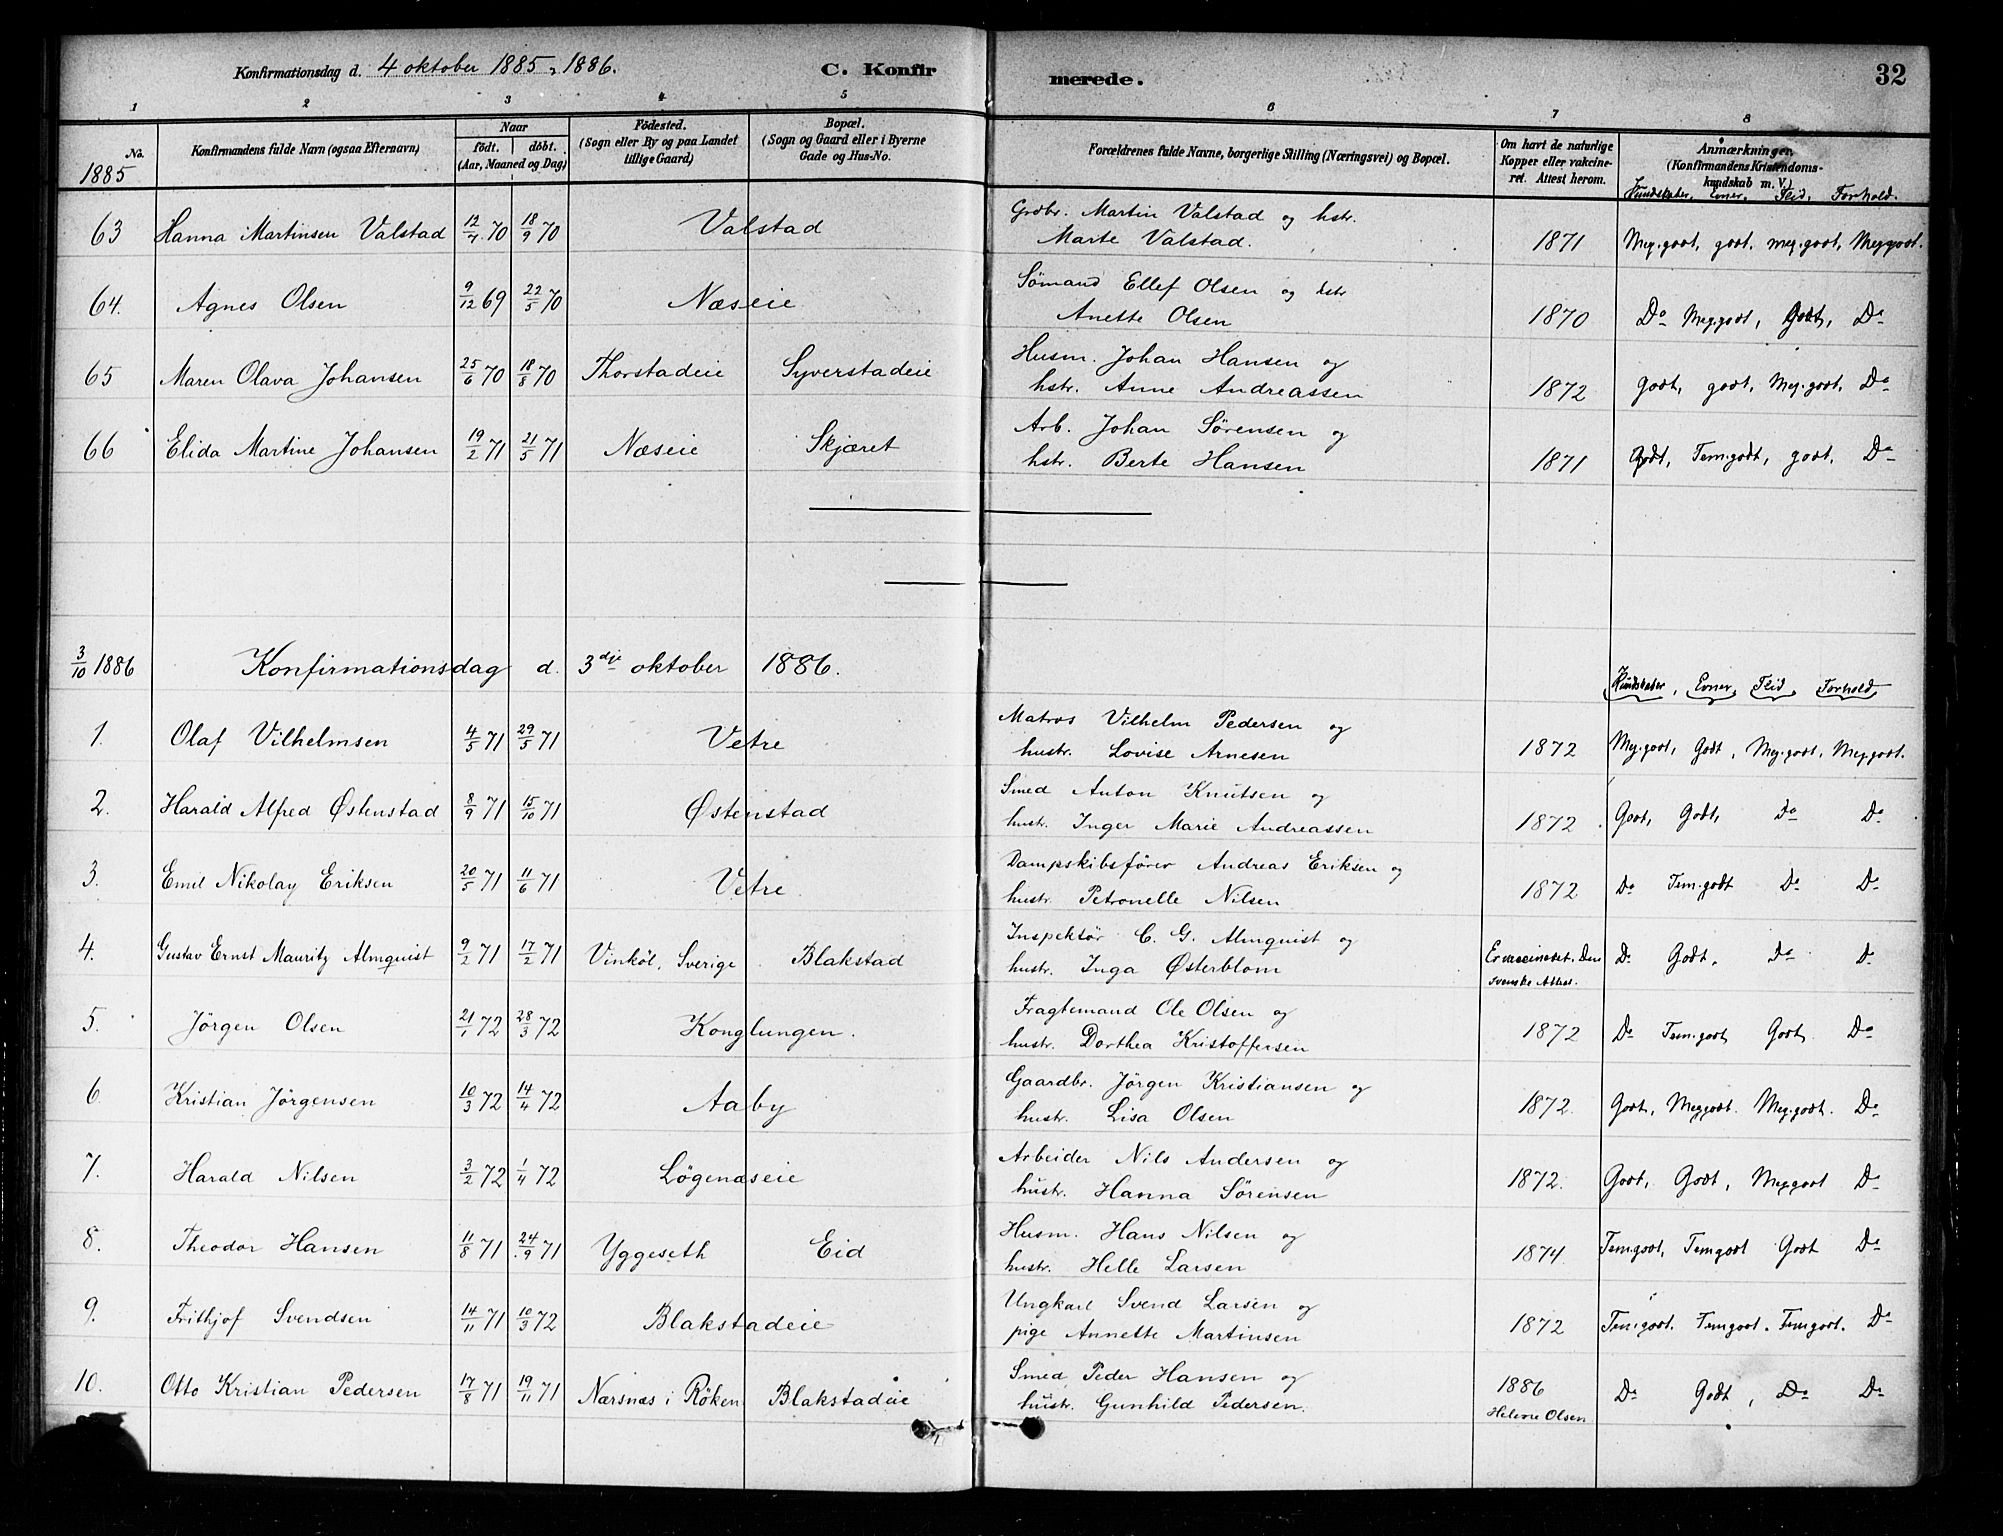 Konfirmationsdag d. 4 oktober 1885, 1886. C. Konfirmerede. 32
1 2 3 4 5 6 7 8
No. Konfirmandens fulde Navn (ogsaa Efternavn) Naar födt. döbt. (Aar, Maaned og Dag) Födested. (Sogn eller By og paa Landet tillige Gaard) Bopæl. (Sogn og Gaard eller i Byerne Gade og Hus-No. Forældrenes fulde Navne, borgerlige Stilling (Næringsvei) og Bopæl. Om havt de naturlige Kopper eller vakcineret. Attest herom. Anmærkninger. (Konfirmandens Kristendomskundskab m. V.)
1885 Kundskaber, Evner, Flid, Forhold.
63 Hanna Martinsen Valstad 12/7 70 18/9 70 Valstad Grdbr. Martin Valstad og hstr.
Marte Valstad. 1871 Meg.godt, godt, meg.godt, Meg godt.
64. Agnes Olsen 9/12 69 22/5 70 Næseie Sømand Ellef Olsen og hstr
Anette Olsen 1870 Do Meg.godt, Godt, Do
65 Maren Olava Johansen 25/6 70 18/8 70 Thorstadeie Syverstadeie Husm. Johan Hansen og
hstr. Anne Andreassen 1872 Godt, godt, Meg.godt, Do
66 Elida Martine Johansen 19/2 71 21/5 71 Næseie Skjæret Arb. Johan Sørensen og
hstr. Berte Hansen 1871 Godt, Tem.godt, godt, Do
3/10 1886 Konfirmationsdag d. 3die oktober 1886.
Kundskaber, Evner, Flid, Forhold
1. Olaf Vilhelmsen 4/5 71 29/5 71 Vetre Matros Vilhelm Pedersen og
hustr. Lovise Arnesen 1872 Meg.godt, Godt, Meg.godt, Meg godt.
2. Harald Alfred Østenstad 8/9 71 15/10 71 Østenstad Smed Anton Knutsen og
hustr. Inger Marie Andreassen 1872 Godt, Godt, Do Do
3. Emil Nikolay Eriksen 20/5 71 11/6 71 Vetre. Dampskibsfører Andreas Eriksen og
hustr. Petronelle Nilsen 1872 Do Tem.godt Do Do
4. Gustav Ernst Mauritz Almquist 9/2 71 17/2 71 Vinköl, Sverige Blakstad Inspektör C. G. Almquist og
hustr. Inga Østerblom Er vaccineret. Den svenske Attest. Do Godt. Do Do
5. Jörgen Olsen 21/1 72 28/3 72 Konglungen. Fragtemand Ole Olsen og
hustr. Dorthea Kristoffersen 1872 Do Tem.godt Godt Do
6. Kristian Jörgensen 10/3 72 14/4 72 Aaby Gaardbr. Jörgen Kristiansen og
hustr. Lisa Olsen 1872. Godt, Meg godt. Meg.godt. Do
7. Harald Nilsen 3/2 72 1/4 72 Løgenæseie Arbeider Nils Andersen og
hustr. Hanna Sørensen 1872. Godt, Godt, Meg godt Do
8. Theodor Hansen 11/8 71 24/9 71 Yggeseth Eid Husm. Hans Nilsen og
hustr. Helle Larsen 1874. Tem.godt, Temgodt Godt Do
9. Frithjof Svendsen 14/11 71 10/3 72 Blakstadeie Ungkarl Svend Larsen og
pige Annette Martinsen 1872 Tem.godt. Temgodt. Temgodt. Do
10. Otto Kristian Pedersen 17/8 71 19/11 71 Nærsnæs i Röken Blakstadeie Smed Peder Hansen og
hustr. Gunhild Pedersen. 1886 Helene Olsen Do Godt, Do Do